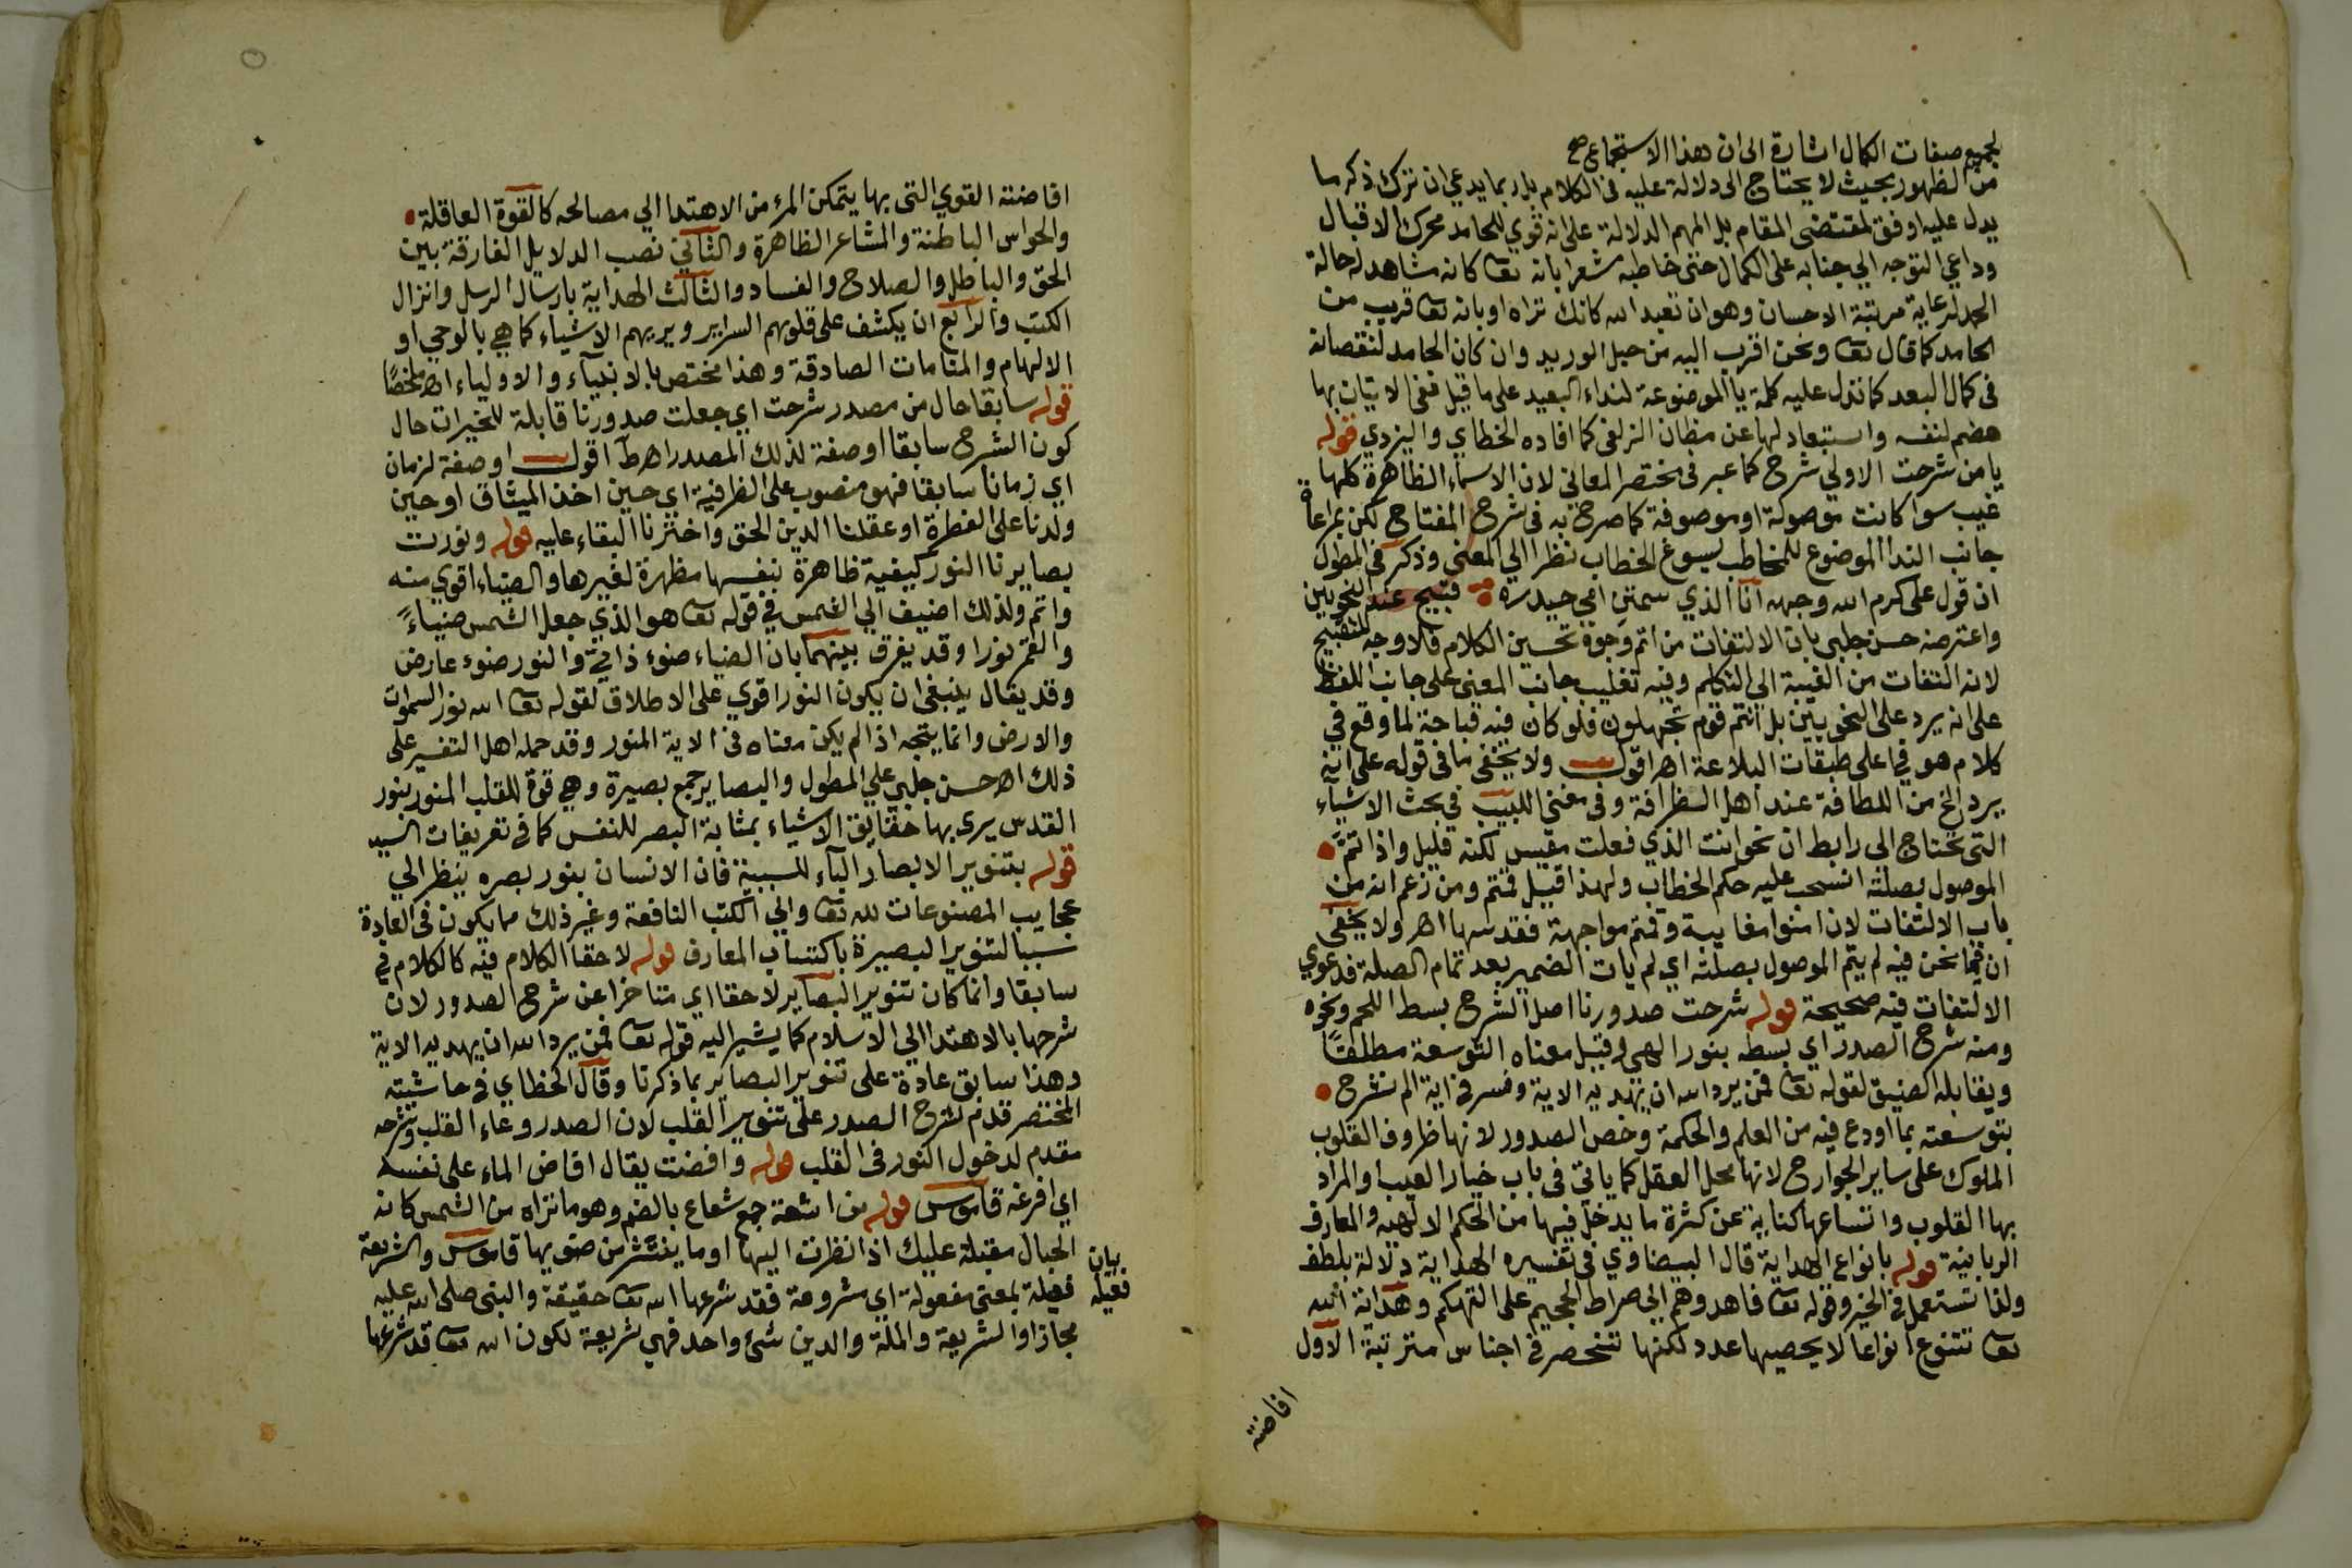 لجميع صفات الكمال اشارة الى ان هذا الاستجماع صح
من الظهور بحيث لا يحتاج الى دلالة عليه فى الكلام بل ربما يدعي ان ترك ذكر ما
يدل عليه اوفق لمقتضى المقام بل المهم الدلالة على انه قوي للحامد محرك الاقبال
وداعي التوجه الي جنابه على الكمال حتى خاطبه مشعرا بانه تعا كانه مشاهد له حالة
الحمد لرعاية مرتبة الاحسان وهو ان تعبد الله كانك تراه او بانه تعا قريب من
الحامد كما قال تعا ونحن اقرب اليه من حبل الوريد وان كان الحامد لنقصانه
فى كمال البعد كما تدل عليه كلمة يا الموضوعة لنداء البعيد على ما قيل ففى الاتيان بها
هضم لنفسه واستبعاد لها عن مظان الزلفى كما افاده الخطاي واليزدي قوله
يا من شرحت الاولي شرح كما عبر فى مختصر المعاني لان الاسماء الظاهرة كلها
غيب سوا كانت موصولة او موصوفة كما صرح به فى شرح المفتاح لكن بمراعاة
جانب الندا الموضوع للمخاطب يسوغ الخطاب نظرا الي المعنى وذكر فى المطول
ان قول على كرم الله وجهه انا الذي سمتن امي حيدره قبيح عند النحويين
واعترضه حسن جلبى بان الالتفات من اتم وجوه تحسين الكلام فلا وجه للتقبيح
لانه التفات من الغيبة الي التكلم وفيه تغليب جانب المعنى على جانب اللفظ
على انه يرد على النحويين بل انتم قوم تجهلون فلو كان فيه قباحة لما وقع في
كلام هو في اعلى طبقات البلاغة اهـ اقول ولا يخفى ما فى قوله على انه
يرد الخ من اللطافة عند اهل الظرافة وفى مغنى اللبيب في بحث الاشياء
التى تحتاج الى رابط ان نحو انت الذي فعلت مقيس لكنه قليل واذا تم
الموصول بصلته انسحب عليه حكم الخطاب ولهذا قيل قمتم ومن زعم انه من
باب الالتفات لان امنوا مغايبة وقمتم مواجهة فقد سها اهـ ولا يخفى
ان فيما نحن فيه لم يتم الموصول بصلته اي لم يات الضمير بعد تمام الصلة فدعوي
الالتفات فيه صحيحة قوله شرحت صدورنا اصل الشرح بسط اللحم ونحوه
ومنه شرح الصدر اي بسطه بنور الهي وقيل معناه التوسعة مطلقا
ويقابله الضيق لقوله تعا فمن يرد الله ان يهديه الاية وفسر فى اية الم نشرح
بتوسعته بما اودع فيه من العلم والحكمة وخص الصدور لانها ظروف القلوب
الملوك على ساير الجوارح لانها محل العقل كما ياتى فى باب خيار العيب والمراد
بها القلوب واتساعها كناية عن كثرة ما يدخل فيها من الحكم الالهيه والمعارف
الربانية قوله بانواع الهداية قال البيضاوي فى تفسيره الهداية دلالة بلطف
ولذا تستعمل فى الخير وقوله تعا فاهدوهم الى صراط الجحيم على التهكم وهداية الله
تعا تتنوع انواعا لا يحصيها عدد لكنها تنحصر فى اجناس مترتبة الاول
افاضة
افاضته القوي التى بها يتمكن المرء من الاهتدا الي مصالحه كالقوة العاقلة
والحواس الباطنة والمشاعر الظاهرة والثاني نصب الدلايل الفارقة بين
الحق والباطل والصلاح والفساد والثالث الهداية بارسال الرسل وانزال
الكتب والرابع ان يكشف على قلوبهم السراير ويريهم الاشياء كما هي بالوحي او
الالهام والمنامات الصادقة وهذا مختص بالانبيآء والاولياء اهـ ملخصا
قوله سابقا حال من مصدر شرحت اي جعلت صدورنا قابلة للخيرات حال
كون الشرح سابقا او صفة لذلك المصدر اهـ ط اقول او صفة لزمان
اي زمانا سابقا فهو منصوب على الظرفية اي حين اخذ الميثاق او حين
ولدنا على الفطرة او عقلنا الدين الحق واخترنا البقاء عليه قوله ونورت
بصايرنا النور كيفية ظاهرة بنفسها مظهرة لغيرها والضياء اقوي منه
واتم ولذلك اضيف الي الشمس في قوله تعا هو الذي جعل الشمس ضياءً
والقمر نورا وقد يفرق بينهما بان الضياء ضوء ذاتي والنور ضوء عارض
وقد يقال ينبغى ان يكون النور اقوي على الاطلاق لقوله تعا الله نور السموات
والارض وانما يتجه اذا لم يكن معناه فى الاية المنور وقد حمله اهل التفسير على
ذلك اهـ حسن جلبي علي المطول والبصاير جمع بصيرة وهي قوة للقلب المنور بنور
القدس يرى بها حقايق الاشياء بمثابة البصر للنفس كما فى تعريفات السيد
قوله بتنوير الابصار البآء للسببية فان الانسان بنور بصره ينظر الي
عجايب المصنوعات لله تعا والي الكتب النافعة وغير ذلك مما يكون فى العادة
سببا لتنوير البصيرة باكتساب المعارف قوله لاحقا الكلام فيه كالكلام في
سابقا وانما كان تنوير البصاير لاحقا اي متاخرا عن شرح الصدور لان
شرحها بالاهتدا الي الاسلام كما يشير اليه قوله تعا فمن يرد الله ان يهديه الاية
وهذا سابق عادة على تنوير البصاير بما ذكرنا وقال الخطاي فى حاشيته
المختصر قدم شرح الصدر على تنوير القلب لان الصدر وعاء القلب وشرحه
مقدم لدخول النور فى القلب قوله وافضت يقال افاض الماء على نفسه
اي افرغه قاموس قوله من اشعة جمع شعاع بالضم وهو ما تراه من الشمس كانه
الحبال مقبلة عليك اذا نظرت اليها او ما ينتشر من ضويها قاموس والشريعة
فعيلة بمعنى مفعولة اي مشروعة فقد شرعها الله تعا حقيقة والنبى صلى الله عليه
مجازا والشريعة والملة والدين شئ واحد فهي شريعة لكون الله تعا قد شرعها
بيان
فعيلة